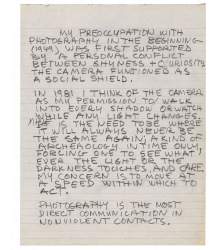 MY PREOCCUPATION WITH
PHOTOGRAPHY IN THE BEGINNING
(1949) WAS FIRST SUPPORTED
BY A PERSONAL CONFLICT
BETWEEN SHYNESS + CURIOSITY
THE CAMERA FUNCTIONED AS
A SOCIAL SHIELD.
IN 1981 I THINK OF THE CAMERA
AS MY PERMISSION TO WALK
INTO EVERY SHADOW OR WATCH
WHILE ANY LIGHT CHANGES.
IS THE NEED TO BE WHERE
IT WILL ALWAYS NEVER BE
THE SAME AGAIN, A KIND OF
ARCHAEOLOGY IN TIME ONLY,
FORCING ONE TO SEE WHAT
EVER THE LIGHT OR THE
DARKNESS TOUCHES, AND CARE.
MY CONCERN IS TO MOVE AT
A SPEED WITHIN WHICH TO
ACT.
PHOTOGRAPHY IS THE MOST
DIRECT COMMUNICATION IN
NONVIOLENT CONTACTS.